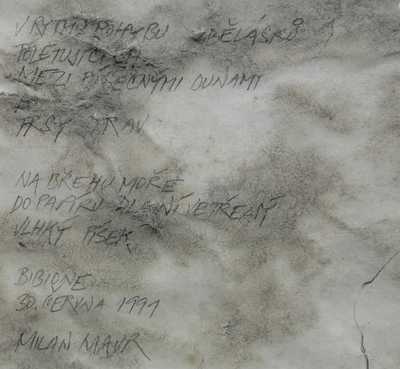 V RYTMU POHYBU DĚLÁSKŮ
POLETUJÍCÍCH
MEZI PÍSEČNÝMI DUNAMI
A
TRSY TRAV
NA BŘEHU MOŘE
DO PAPÍRU DLANÍ VETŘENÝ
VLHKÝ PÍSEK
BIBIONE
30. ČERVNA 1991
MILAN MAUR